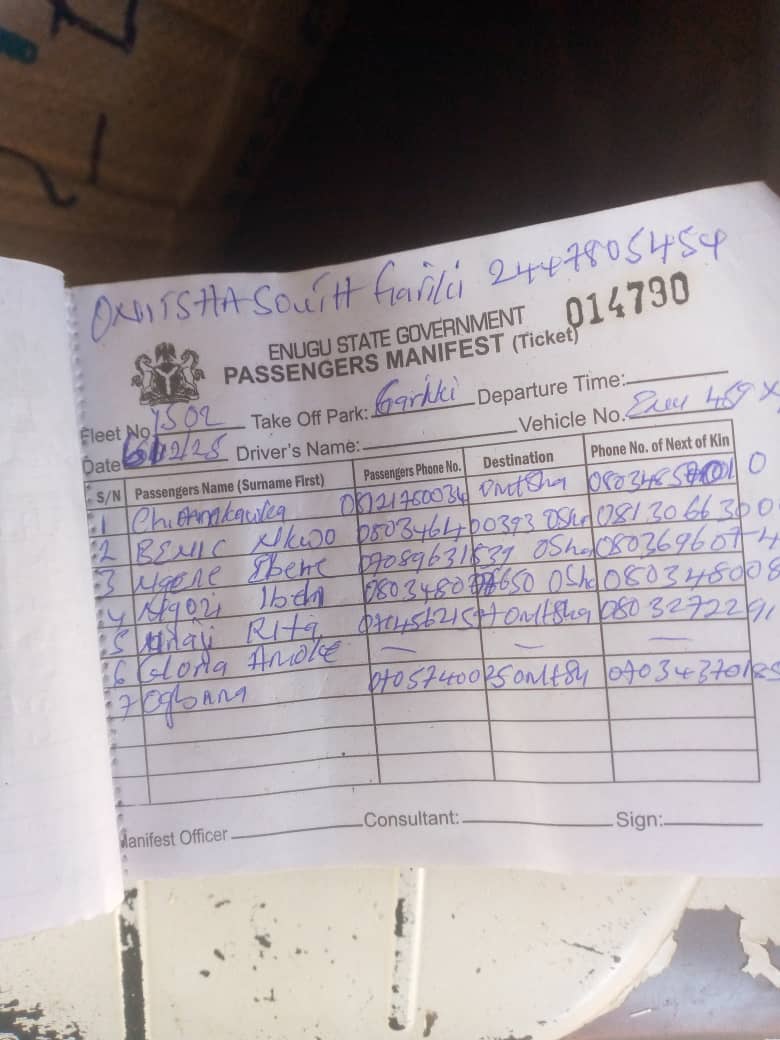 ONITSHA South Gariki 2447805454
014790
ENUGU STATE GOVERNMENT
PASSENGERS MANIFEST (Ticket)
Fleet No 1502 Take Off Park: Garkki Departure Time:
Date 6/12/25 Driver's Name: Vehicle No. 459 X
S/N Passengers Name (Surname First) Passengers Phone No. Destination Phone No. of Next of Kin
1 08121780034 Omtsha
2 BENIC NKWO 0803461400393 OSha 0813066300
3 Ngene Ebere 07089631539 OSha 080369607-4
4 Ngozi Ibeh OSha 080348008
5 Rita Omtsha 0803272291
6 Gloria Anoke — — —
7 Ogbnna 07057400250mtSh 0703437018
Manifest Officer Consultant: Sign: